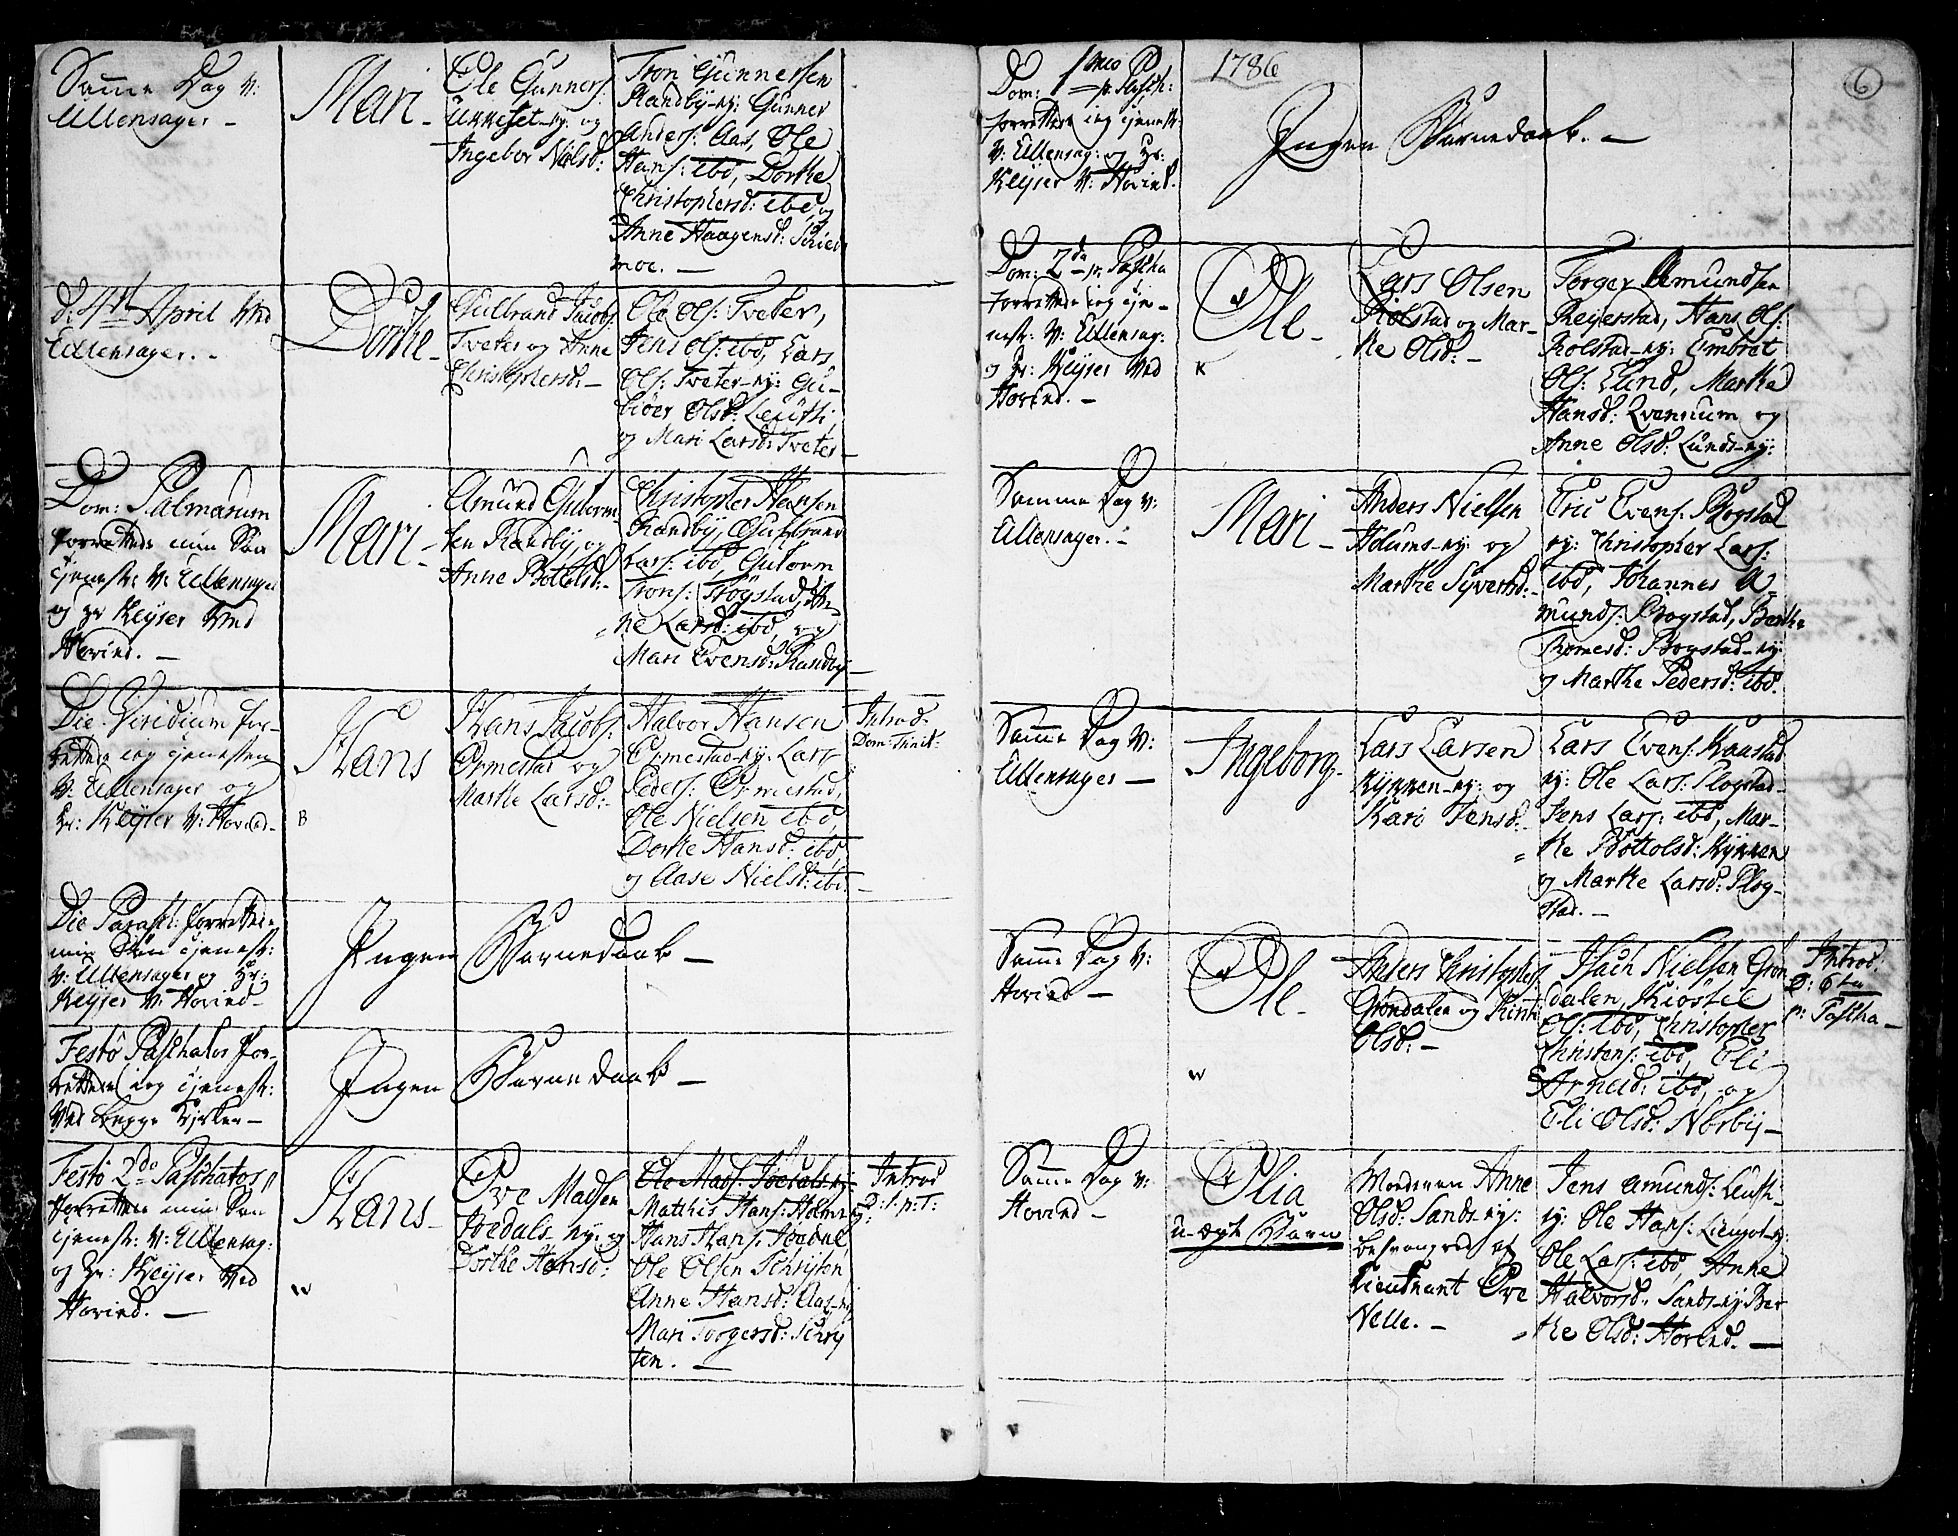 Samme Dag v:
Ullensager –
Mari –
Ole Gunners:
Ukkeset-ey: og
Ingebor Nielsd:
Tron Gunnersen
Randby-ey: Gunner
Anders: Aas, Ole
Hans: ibd, Dorthe
Christophersd: ibd, og
Anne Haagensd:
moe. –
d. 4de April ved
Ullensager. –
Dorthe –
Gulbrand Jacobs:
Tveter og Anne
Christophersd: –
Ole Ols: Tveter,
Jens Ols: ibd, Lars
Ols: Tveter-ey: Gu-
biør Olsd:
og Mari Larsd: Tveter –
Dom: Palmarum
forrettede min Søn
tjenest: v: Ullensager
og Hr Keyser ved
Hovind. –
Mari –
Amund Gutorm-
sen Randby, og
Anne Bottelsd: –
Christopher Hansen
Randby, Gulbrand
Lars: ibd, Gutorm
Trons: Trøgstad, An-
ne Larsd: ibd, og
Mari Evensd: Randby –
Die Viridium for-
rettede jeg tjenesten
v: Ullensager og
Hr: Keyser v: Hovind –
Hans
B
Hans Jacobs:
Ormestad og
Marthe Larsd: –
Halvor Hansen
Ormestad-ey: Lars
Peders: Ormestad,
Ole Nielsen ibd,
Dorthe Hansd: ibd,
og Aase Nielsd: ibd: –
Introd.
Dom: Trinit:
Die Parask: forrettede
min Søn tjenest:
v: Ullensager og Hr:
Keyser v: Hovind –
Ingen Barnedaab –
Festo Paschatos for-
rettede jeg tjenest:
ved begge Kirker –
Ingen Barnedaab –
Festo 2do Paschatos
forrettede min Søn
tjenest: v: Ullensag:
og Hr: Keyser ved
Hovind. –
Hans –
w
Ove Madsen
Joedals-ey: og
Dorthe Hansd:
Ole Mads: Joedals-ey:
Matthis Hans: Holm-ey:
Hans Hans: Joedal,
Ole Olsen Schrysen
Anne Hansd: Aas-ey
Mari Torgersd: Schry
sen. –
Introd
D: 1. p: T:
1786
6
Dom: 1mo p: Pasch:
forrettede jeg tjenest:
v: Ullensag: og Hr:
Keyser v: Hovind.
Ingen Barnedaab. –
Dom: 2da p: Pascha
forrettede jeg tje-
nest: v: Ullensag:
og Hr: Keyser ved
Hovind. –
Ole –
K
Lars Olsen
Kolstad og Mar-
the Olsd: –
Torger Amundsen
Reyerstad, Hans Ols:
Kolstad-ey: Embret
Ols: Elind, Marthe
Hansd: Qvernum og
Anne Olsd: Lunds-ey:
Samme Dag v:
Ullensager. –
Mari –
Anders Nielsen
Holums-ey: og
Marthe Syversd: –
Eric Evens: Bogstad
ey: Christopher Lars:
ibd, Johannes A-
munds: Bogstad, Berthe
Tromesd: Bogstad-ey:
og Marthe Pedersd: ibd.
Samme Dag v:
Ullensager –
Ingeborg –
Lars Larsen
Kykken-ey: og
Kari Jensd: –
Lars Evens: Kaustad
ey: Ole Lars: Slogstad –
Jens Lars: ibd, Mar-
the Bottolsd: Kykken
og Marthe Larsd: Slog-
stad. –
Samme Dag v:
Hovind –
Ole –
w
Anders Christophers:
Grøndalen og Kirsti
Olsd: –
Isach Nielsen Grøn
dalen, Kiøstel
Ols: ibd, Christopher
Christens: ibd, Eli
Arnesd: ibd, og
Eli Olsd: Nørby –
Introd.
D: 6ta
p: Pascha –
Samme Dag v:
Hovind –
Olia
u-ægt Barn
Mødemen Anne
Olsd: Sands-ey:
besvangred af
Lieutnant Ove
Nelle. –
Jens Amunds:
ey: Ole Hans:
Ole Lars: ibd, Anne
Halvorsd: Sands-ey: Ber
the Olsd: Hovind. –